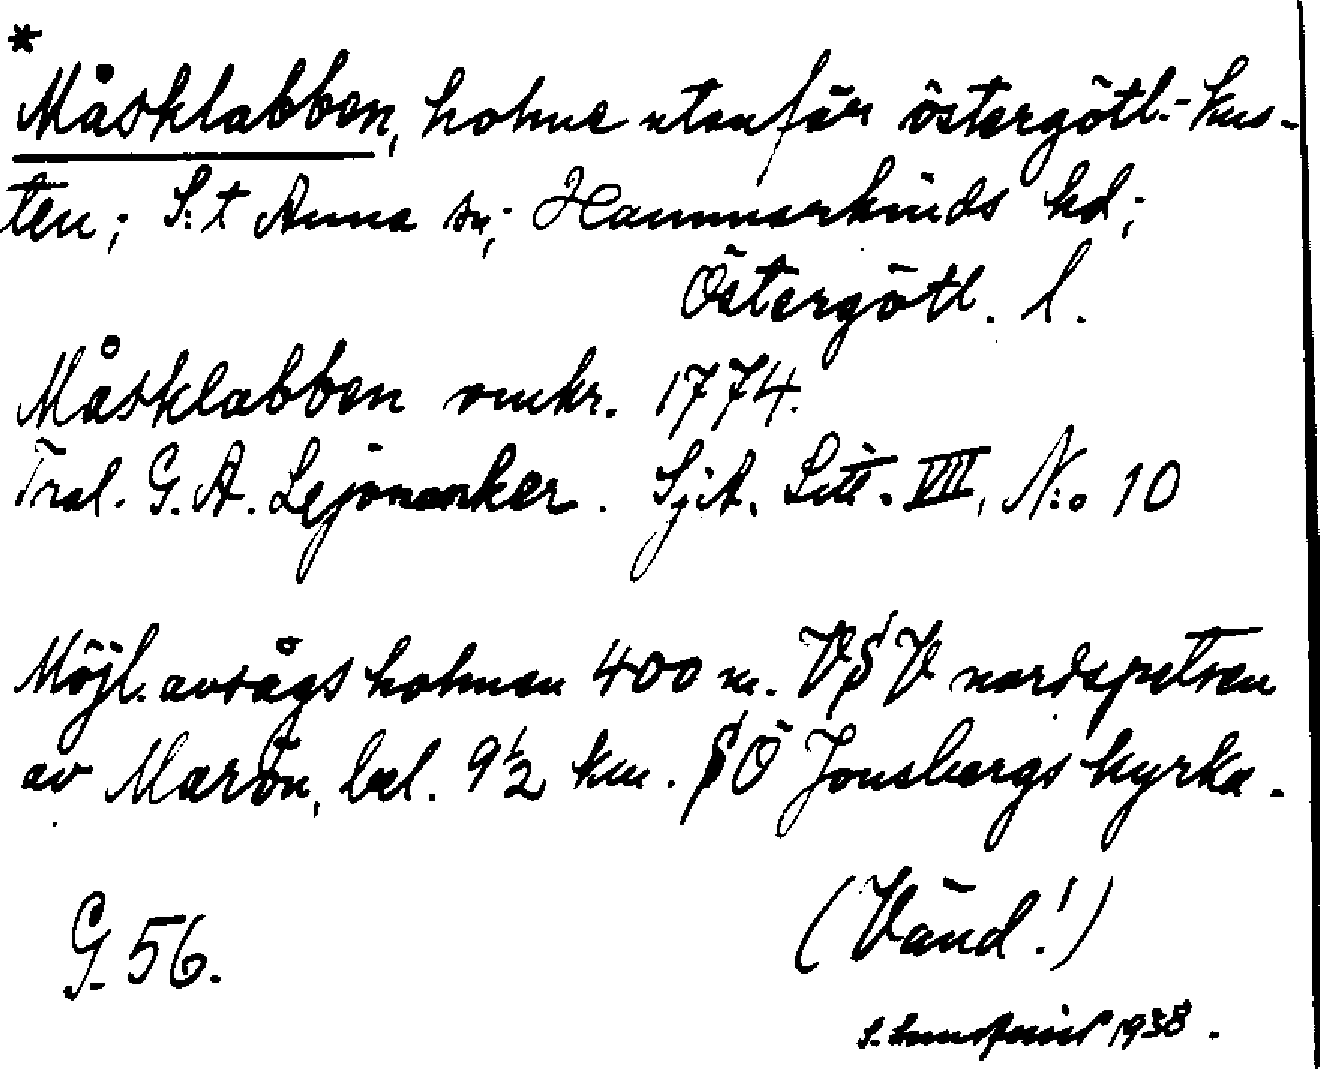 *
Måsklabben, holme utanför östergötl.-kus-
ten; S:t Anna sn; Hammarkinds hd;
Östergötl. l.
Måsklabben omkr. 1774.
Tral. G. A. Lejonanker. Sjöt. Litt. VIII, N:o 10
Möjl. avsågs holmen 400 m. VSV nordspetsen
av Marön, bel. 9½ km. SÖ Jonsbergs kyrka.
(Vänd!)
G. 56.
1938.